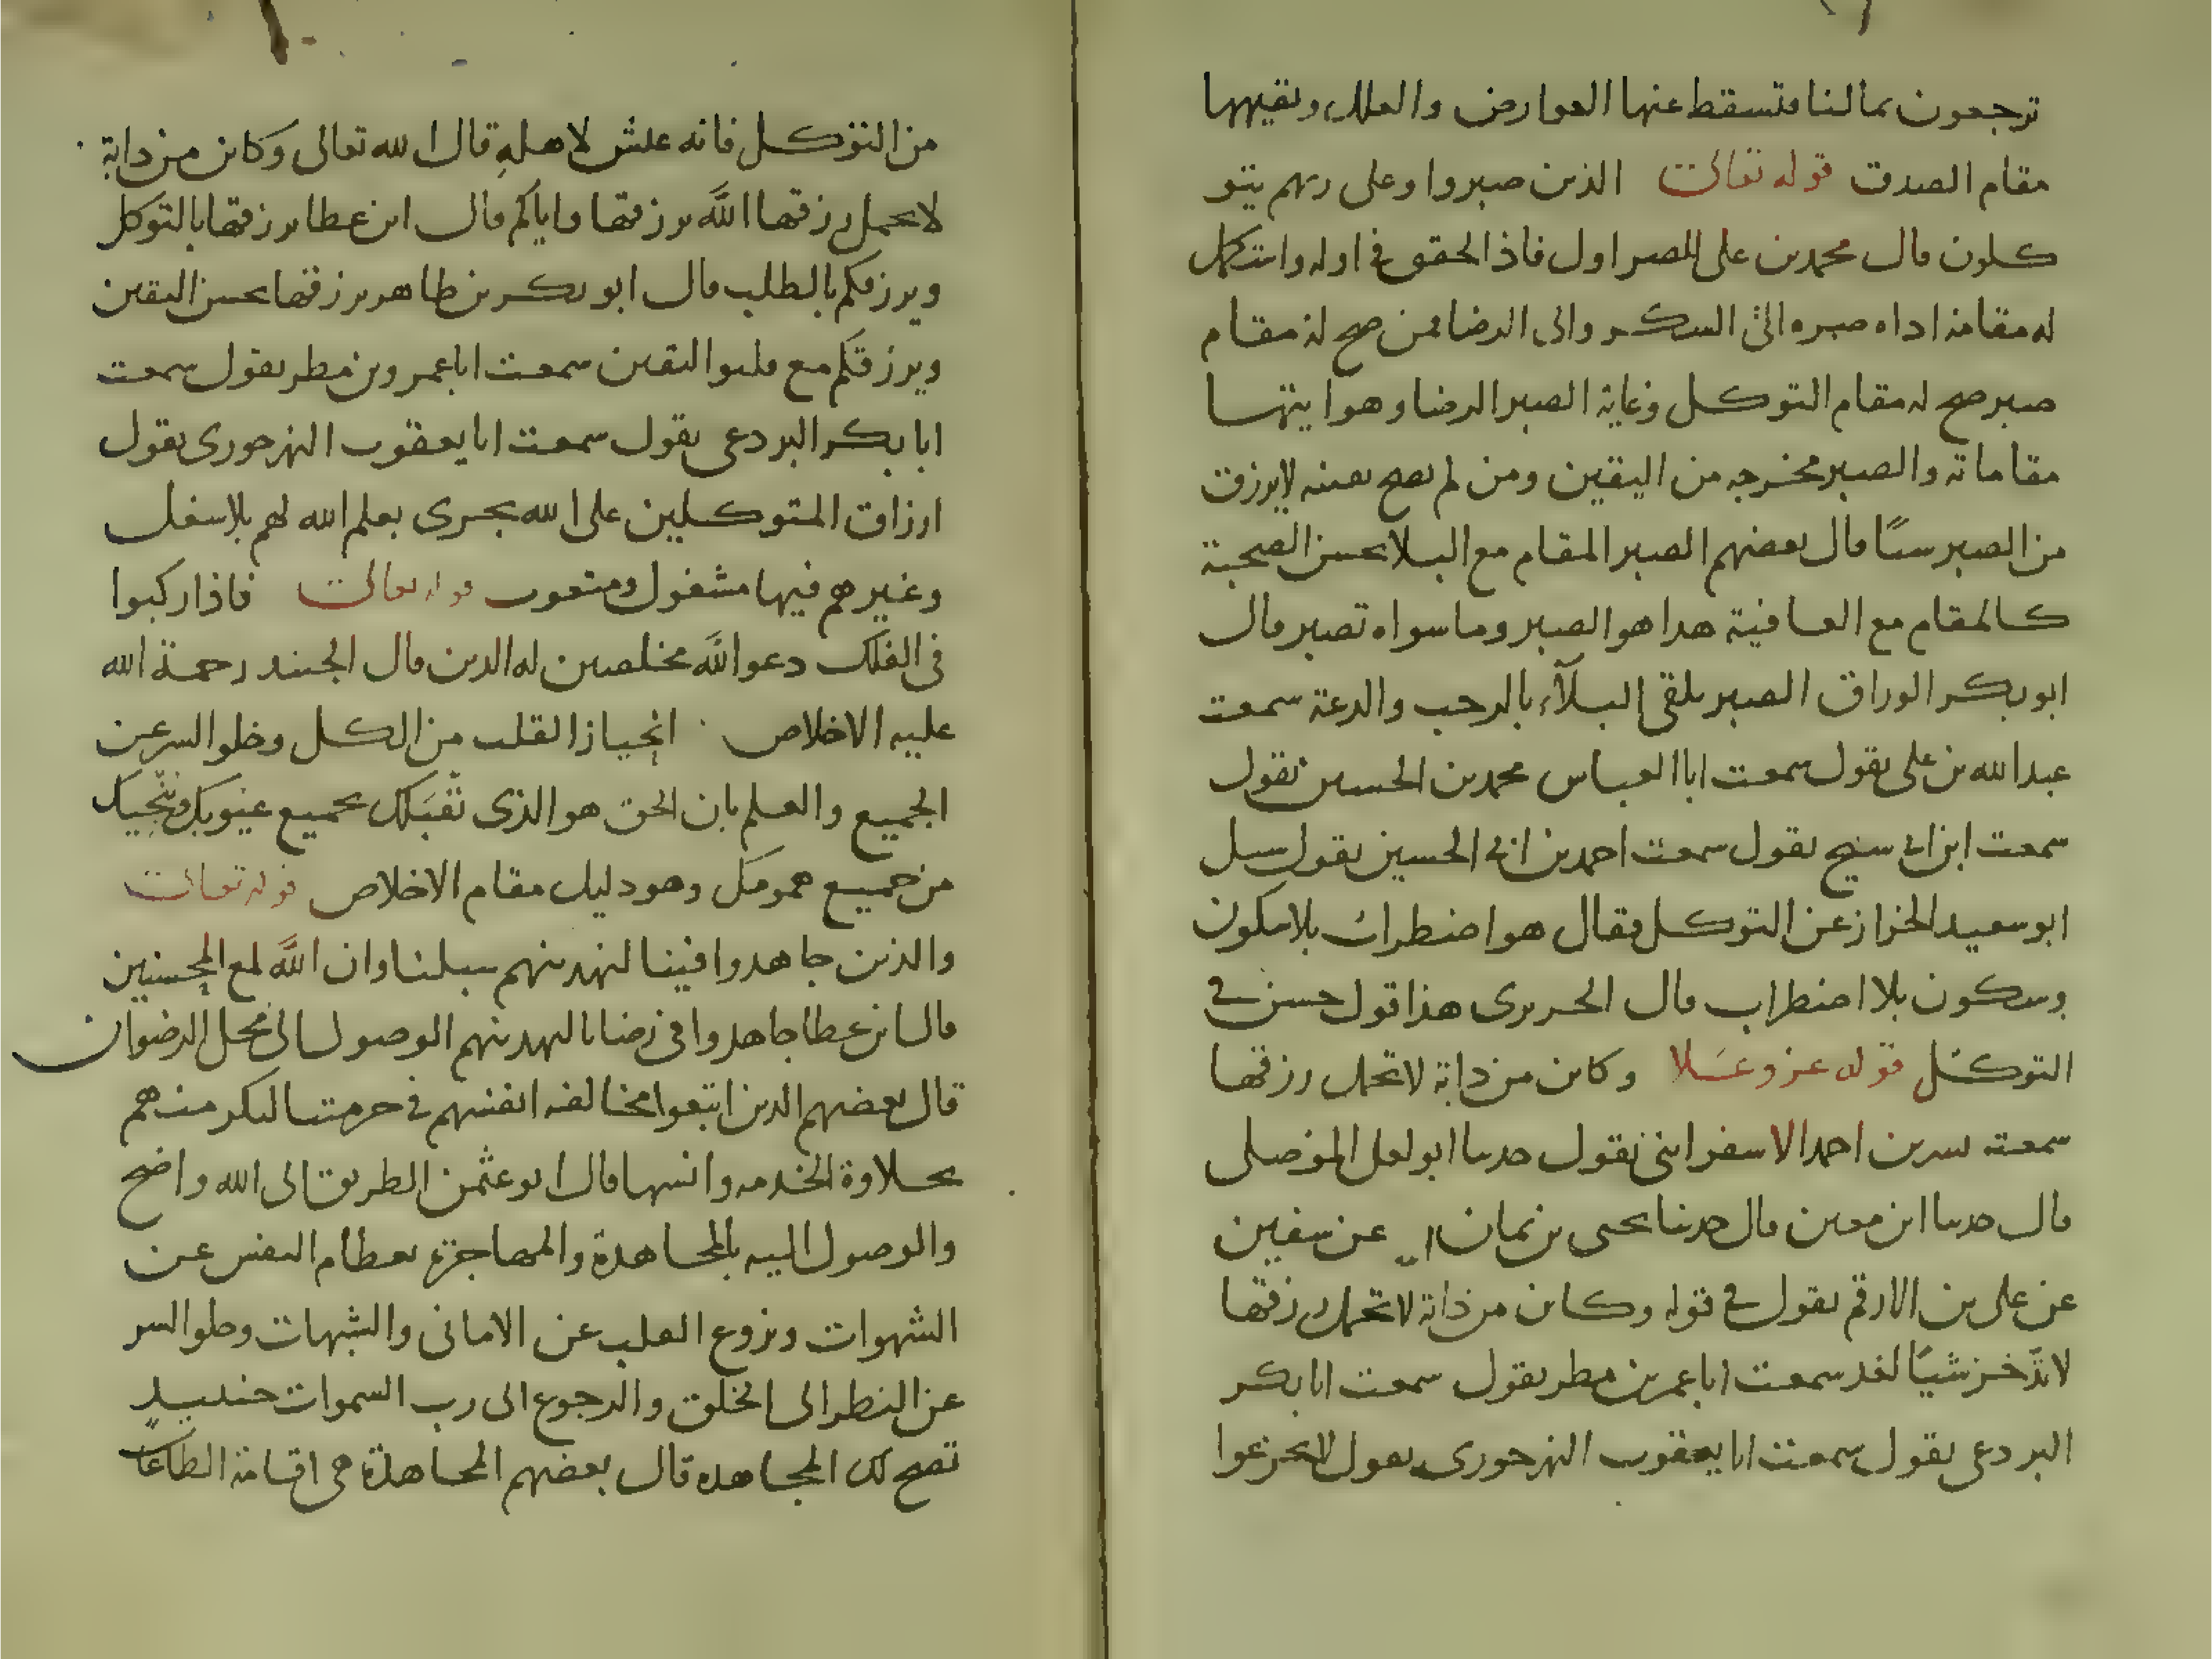 ترجعون بمالنا فتسقط عنها العوارض والعلل ونقيهها
مقام الصدق قوله تعالى الذين صبروا وعلى ربهم يتو
كلون قال محمد بن على للصبر اول فاذا لحقق فى اوله واستكمل
له مقامه اداه صبره الى السكر والى الرضا فمن صح له مقام
صبر صح له مقام التوكل وغاية الصبر الرضا وهو اينتها
مقاماته والصبر مخرجه من اليقين ومن لم يصح يقينه لايرزق
من الصبر سيًا قال بعضهم الصبر المقام مع البلا بحسن الصحبة
كالمقام مع العافية هدا هو الصبر وما سواه تصبر قال
ابو بكر الوراق الصبر يلقى البلآء بالرحب والدعة سمعت
عبد الله بن على يقول سمعت ابا العباس محمد بن الحسين يقول
سمعت ابن ابى سنيح يقول سمعت احمد بن ابى الحسين يقول سىل
ابو سعيد الخزاز عن التوكل فقال هو اضطراب بلا سكون
وسكون بلا اضطراب قال الحريرى هذا قول حسن فى
التوكل قوله عز وعلا وكاين من دابة لا تحمل رزقها
سمعته بسر بن احمد الاسفراينى يقول حدىىا ابو لعلى الموصلى
قال حدىىا ابن معين قال حدىنا يحيى بن يمان عن سفين
عن على بن الارقم يقول فى قوله وكاين من دابة لا تحمل رزقها
لا تدّخر شيًا لغد سمعت ابا عمر بن مطر يقول سمعت ابا بكر
البردعى يقول سمعت ابا يعقوب النهرجورى يقول لا تجزعوا
من التوكل فانه عيش لاهله قال الله تعالى وكاين من دابة
لا تحمل رزقها الله يرزقها واياكم قال ابن عطا يرزقها بالتوكل
ويرزقكم بالطلب قال ابو بكر بن طاهر يرزقها بحسن اليقين
ويرزقكم مع اليقين سمعت ابا عمرو بن مطر يقول سمعت
ابا بكر البردعى يقول سمعت ابا يعقوب النهرجورى يقول
ارزاق المتوكلين على الله يجرى بعلم الله لهم بلا سغل
وغيرهم فيها مشغول ومتعوب قوله تعالى فاذا ركبوا
فى الفلك دعوا الله مخلصين له الدين قال الجنيد رحمة الله
عليه الاخلاص انحياز القلب من الكل وخلو السر عن
الجميع والعلم بان الحق هو الذى يقبلك بجميع عيوبك وينجيك
من جميع همومك وهو دليل مقام الاخلاص قوله تعالى
والذين جاهدوا فينا لنهدينهم سبلنا وان الله لمع المحسنين
قال ابن عطا جاهدوا فى رضانا لنهدينهم الوصول الى محل الرضوان
قال بعضهم الذين اتبعوا مخالفه انفسهم فى حرمتنا لنكرمنهم
بحلاوة الخدمه وانسها قال ابو عثمن الطريق الى الله واضح
والوصول اليه بالمجاهدة والمهاجرة بفطام النفس عن
الشهوات ونزوع القلب عن الامانى والشبهات وخلو السر
عن النظر الى الخلق والرجوع الى رب السموات حينيدٍ
تصح لك المجاهده قال بعضهم المجاهدة هى اقامة الطاعات